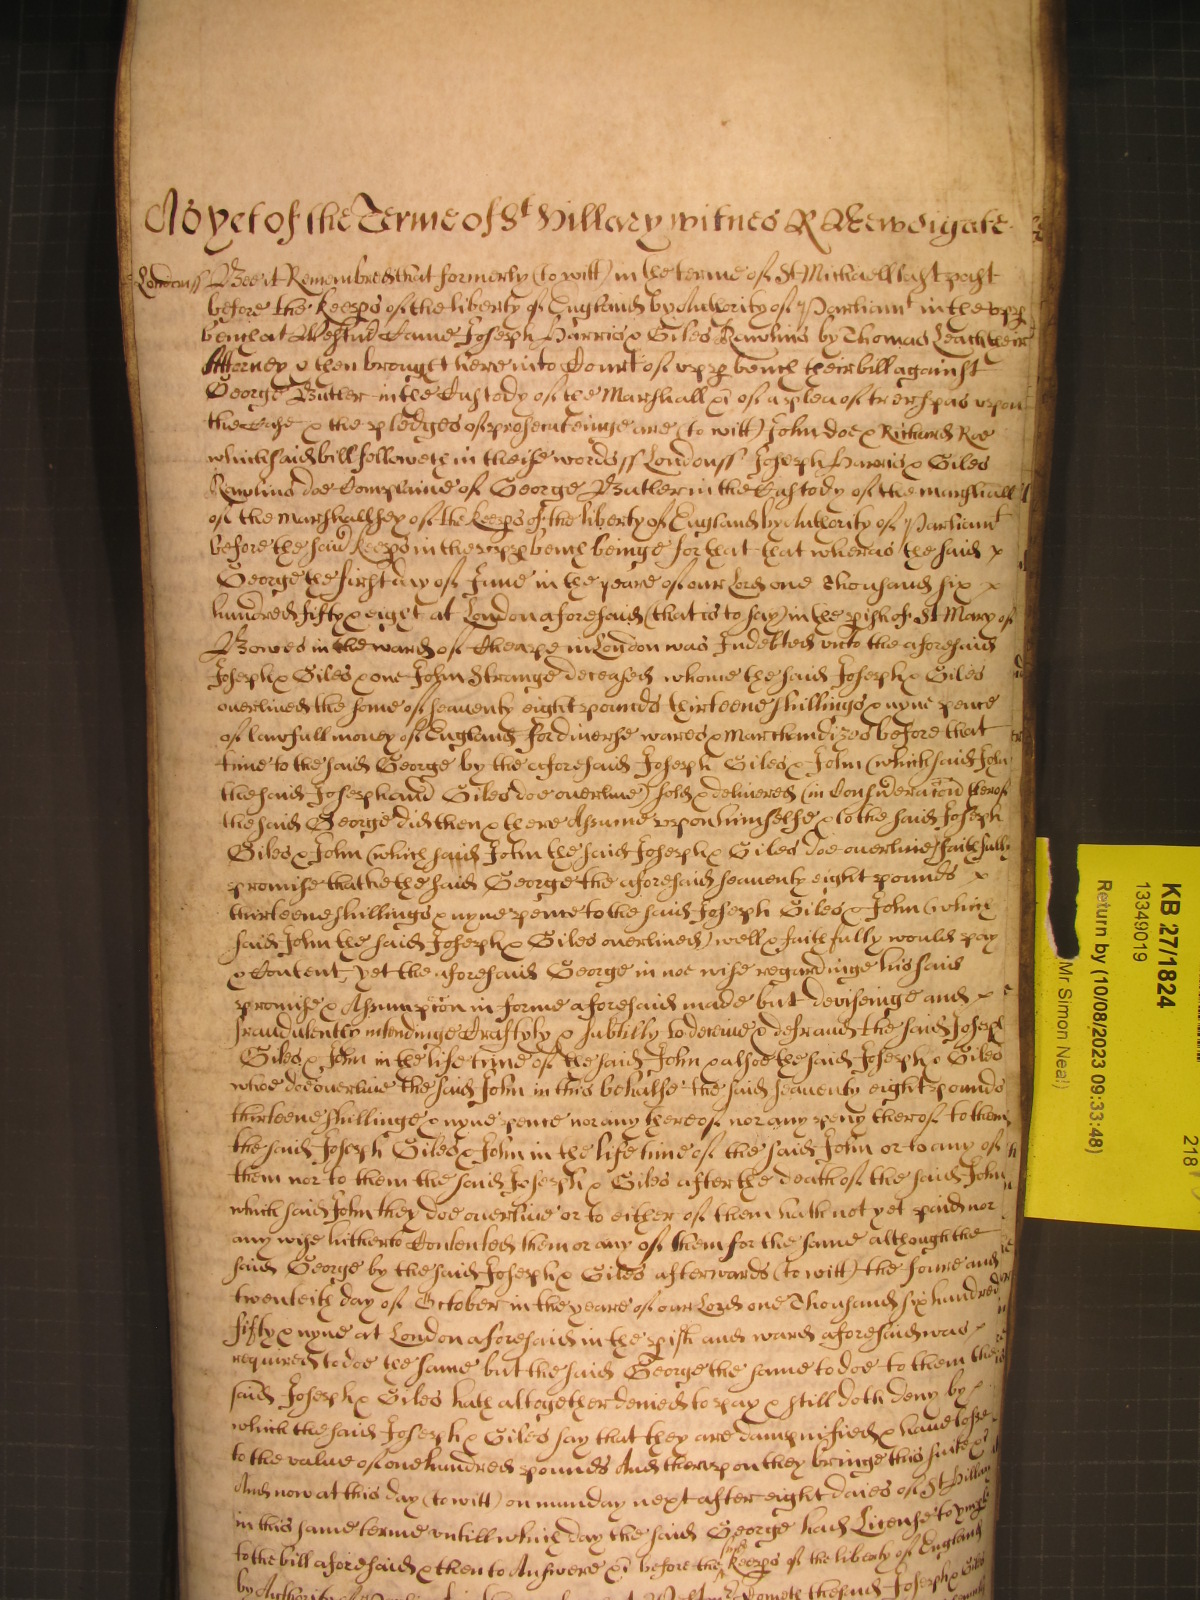 As yet of the Terme of St Hillary witnes R Newdigate
Londonss Bee it Remembred that formerly (to witt) in the terme of St Michaell last past
before the keeps of the liberty of England by Authority of Parliamt in the upp
bench at Westmr Came Joseph Harris & Giles Rawlins by Thomas Leach their
Attorney & then brought here into Court of upp bench their bill against
George Butler in the Custody of the Marshall &c of a plea of trespas upon
the Case & the pledges of prosecuteinge are (to witt) John doe & Richard Roe
which said bill followeth in theise words ss Londonss Joseph Harris & Giles
Rawlins doe Complaine of George Butler in the Custody of the marshall
of the marshallsey of the keeps of the liberty of England by Authority of Parliamt
before the said keeps in the upp bench beinge for that that wheras the said x
George the first day of June in the yeare of our Lord one Thousand six x
hundred fifty & eight at London aforesaid (that is to say) in the pish of St Mary of
Bowes in the ward of Cheape in London was Indebted unto the aforesaid
Joseph & Giles & one John Strange deceased whome the said Joseph & Giles
overlived the some of seaventy eight pounds thirteene shillings & nyne pence
of lawfull money of England for diverse wares & marchandizes before that
time to the said George by the aforesaid Joseph Giles & John (which said John
the said Joseph and Giles doe overlive) sold & delivered (in Consideracon therof
the said George did then & there Assume upon himselfe & to the said Joseph
Giles & John (which said John the said Joseph & Giles doe overlive) faithfully
promise that he the said George the aforesaid seaventy eight pounds x
thirteene shillings & nyne pence to the said Joseph Giles & John (which
said John the said Joseph & Giles overlived) well & faithfully would pay
& Content, yet the aforesaid George in noe wise regardinge his said
promise & Assumpcon in forme aforesaid made but deviseinge and x
fraudulently intendinge Craftyly & subtilly to deceive & defraud the said Joseph
Giles & John in the life tyme of the said John & alsoe the said Joseph & Giles
whoe doe overlive the said John in this behalfe the said seaventy eight pounds
thirteene shillinge & nyne pence nor any thereof nor any peny therof to them
the said Joseph Giles & John in the life time of the said John or to any of
them nor to them the said Joseph & Giles after the death of the said John
which said John they doe overlive or to either of them hath not yet paid nor
any wise hitherto Contented them or any of them for the same although the
said George by the said Joseph & Giles afterwards (to witt) the foure and
twenteith day of October in the yeare of our Lord one Thousand six hundred
fifty & nyne at London aforesaid in the pish and ward aforesaid was x
required to doe the same but the said George the same to doe to them the
said Joseph & Giles hath altogether denied to pay & still doth deny by x
which the said Joseph & Giles say that they are dampnified & have losse
to the value of one hundred pounds And therupon they bringe this suite &c
And now at this day (to witt) on munday next after eight daies of St Hillary
in this same terme untill which day the said George had License to imple
to the bill aforesaid & then to Answere &c before the said keeps of the liberty of England
by Authority of Cometh the said Joseph & Giles
KB 27/1824
13349019
Return by (10/08/2023 09:33:48)
(Mr Simon Neal)
218